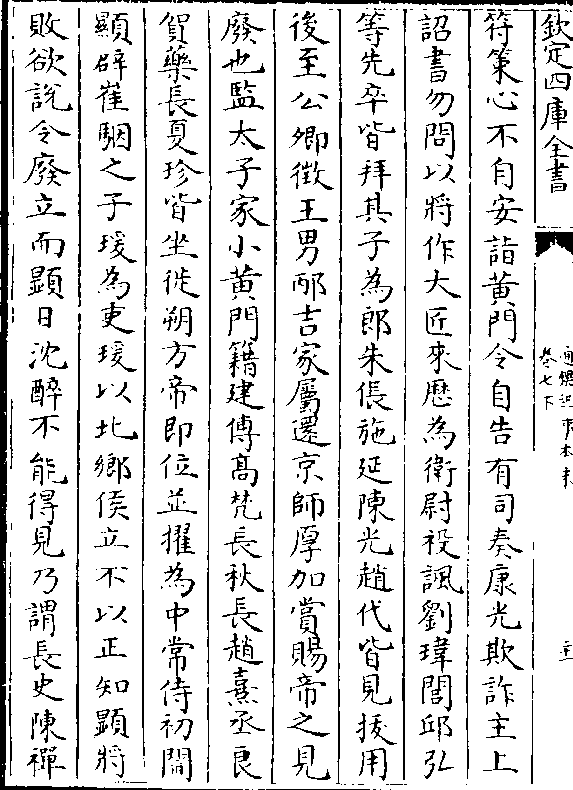 欽定四庫全書
通鑑紀事本末
卷七下
符策心不自安詣黄門令自告有司奏康光欺詐主上
詔書勿問以將作大匠來歴為衛尉祋諷劉瑋閭邱弘
等先卒皆拜其子為郎朱倀施延陳光趙代皆見拔用
後至公卿徴王男邴吉家屬還京師厚加賞賜帝之見
廢也監太子家小黄門籍建傅高梵長秋長趙熹丞良
賀藥長夏珍皆坐徙朔方帝即位並擢為中常侍初閻
顯辟崔駰之子瑗為吏瑗以北鄉侯立不以正知顯將
敗欲說令廢立而顯日沈醉不能得見乃謂長史陳禪